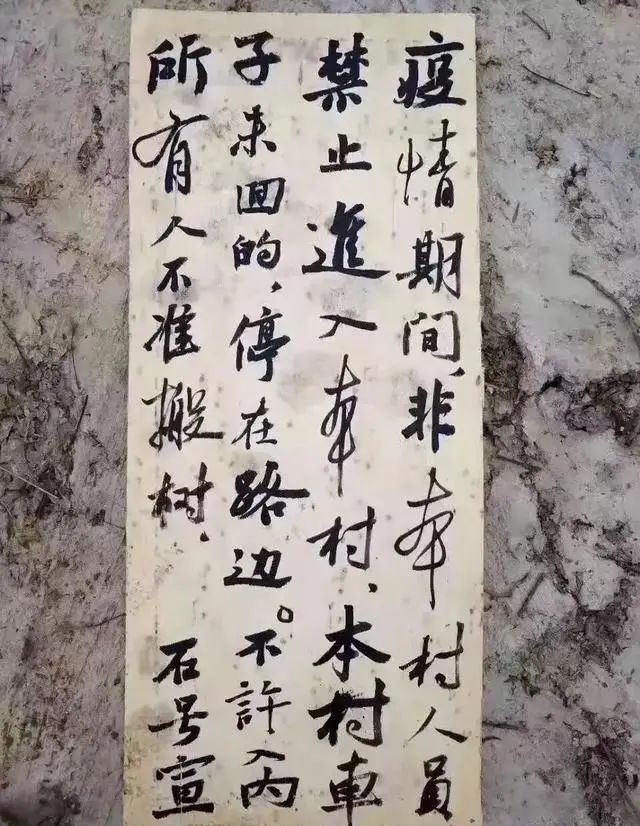 疫情期间,非本村人员
禁止進入本村、本村車
子来回的,停在路边。不許入内
所有人不准搬树.
石号宣